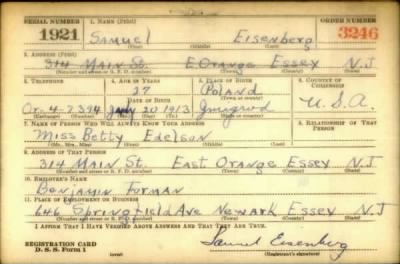 SERIAL NUMBER 1. NAME (Print) ORDER NUMBER
1921 Samuel Eisenberg 3246
(First) (Middle) (Last)
2. ADDRESS (Print)
314 Main St. E. Orange Essex N.J
(Number and street or R. F. D. number) (Town) (County) (State)
3. TELEPHONE 4. AGE IN YEARS 5. PLACE OF BIRTH 6. COUNTRY OF CITIZENSHIP
27 Poland
DATE OF BIRTH (Town or county)
Or-4-7394 20 1913 U.S.A.
(Exchange) (Number) (Mo.) (Day) (Yr.) (State or country)
7. NAME OF PERSON WHO WILL ALWAYS KNOW YOUR ADDRESS 8. RELATIONSHIP OF THAT PERSON
Miss Betty Edelson
(Mr., Mrs., Miss) (First) (Middle) (Last)
9. ADDRESS OF THAT PERSON
314 Main St. East Orange Essex N.J
(Number and street or R. F. D. number) (Town) (County) (State)
10. EMPLOYER'S NAME
Benjamin Forman
11. PLACE OF EMPLOYMENT OR BUSINESS
646 Springfield Ave Newark Essex N.J
(Number and street or R. F. D. number) (Town) (County) (State)
I AFFIRM THAT I HAVE VERIFIED ABOVE ANSWERS AND THAT THEY ARE TRUE.
REGISTRATION CARD
D. S. S. Form 1 Samuel Eisenberg
(Registrant's signature)